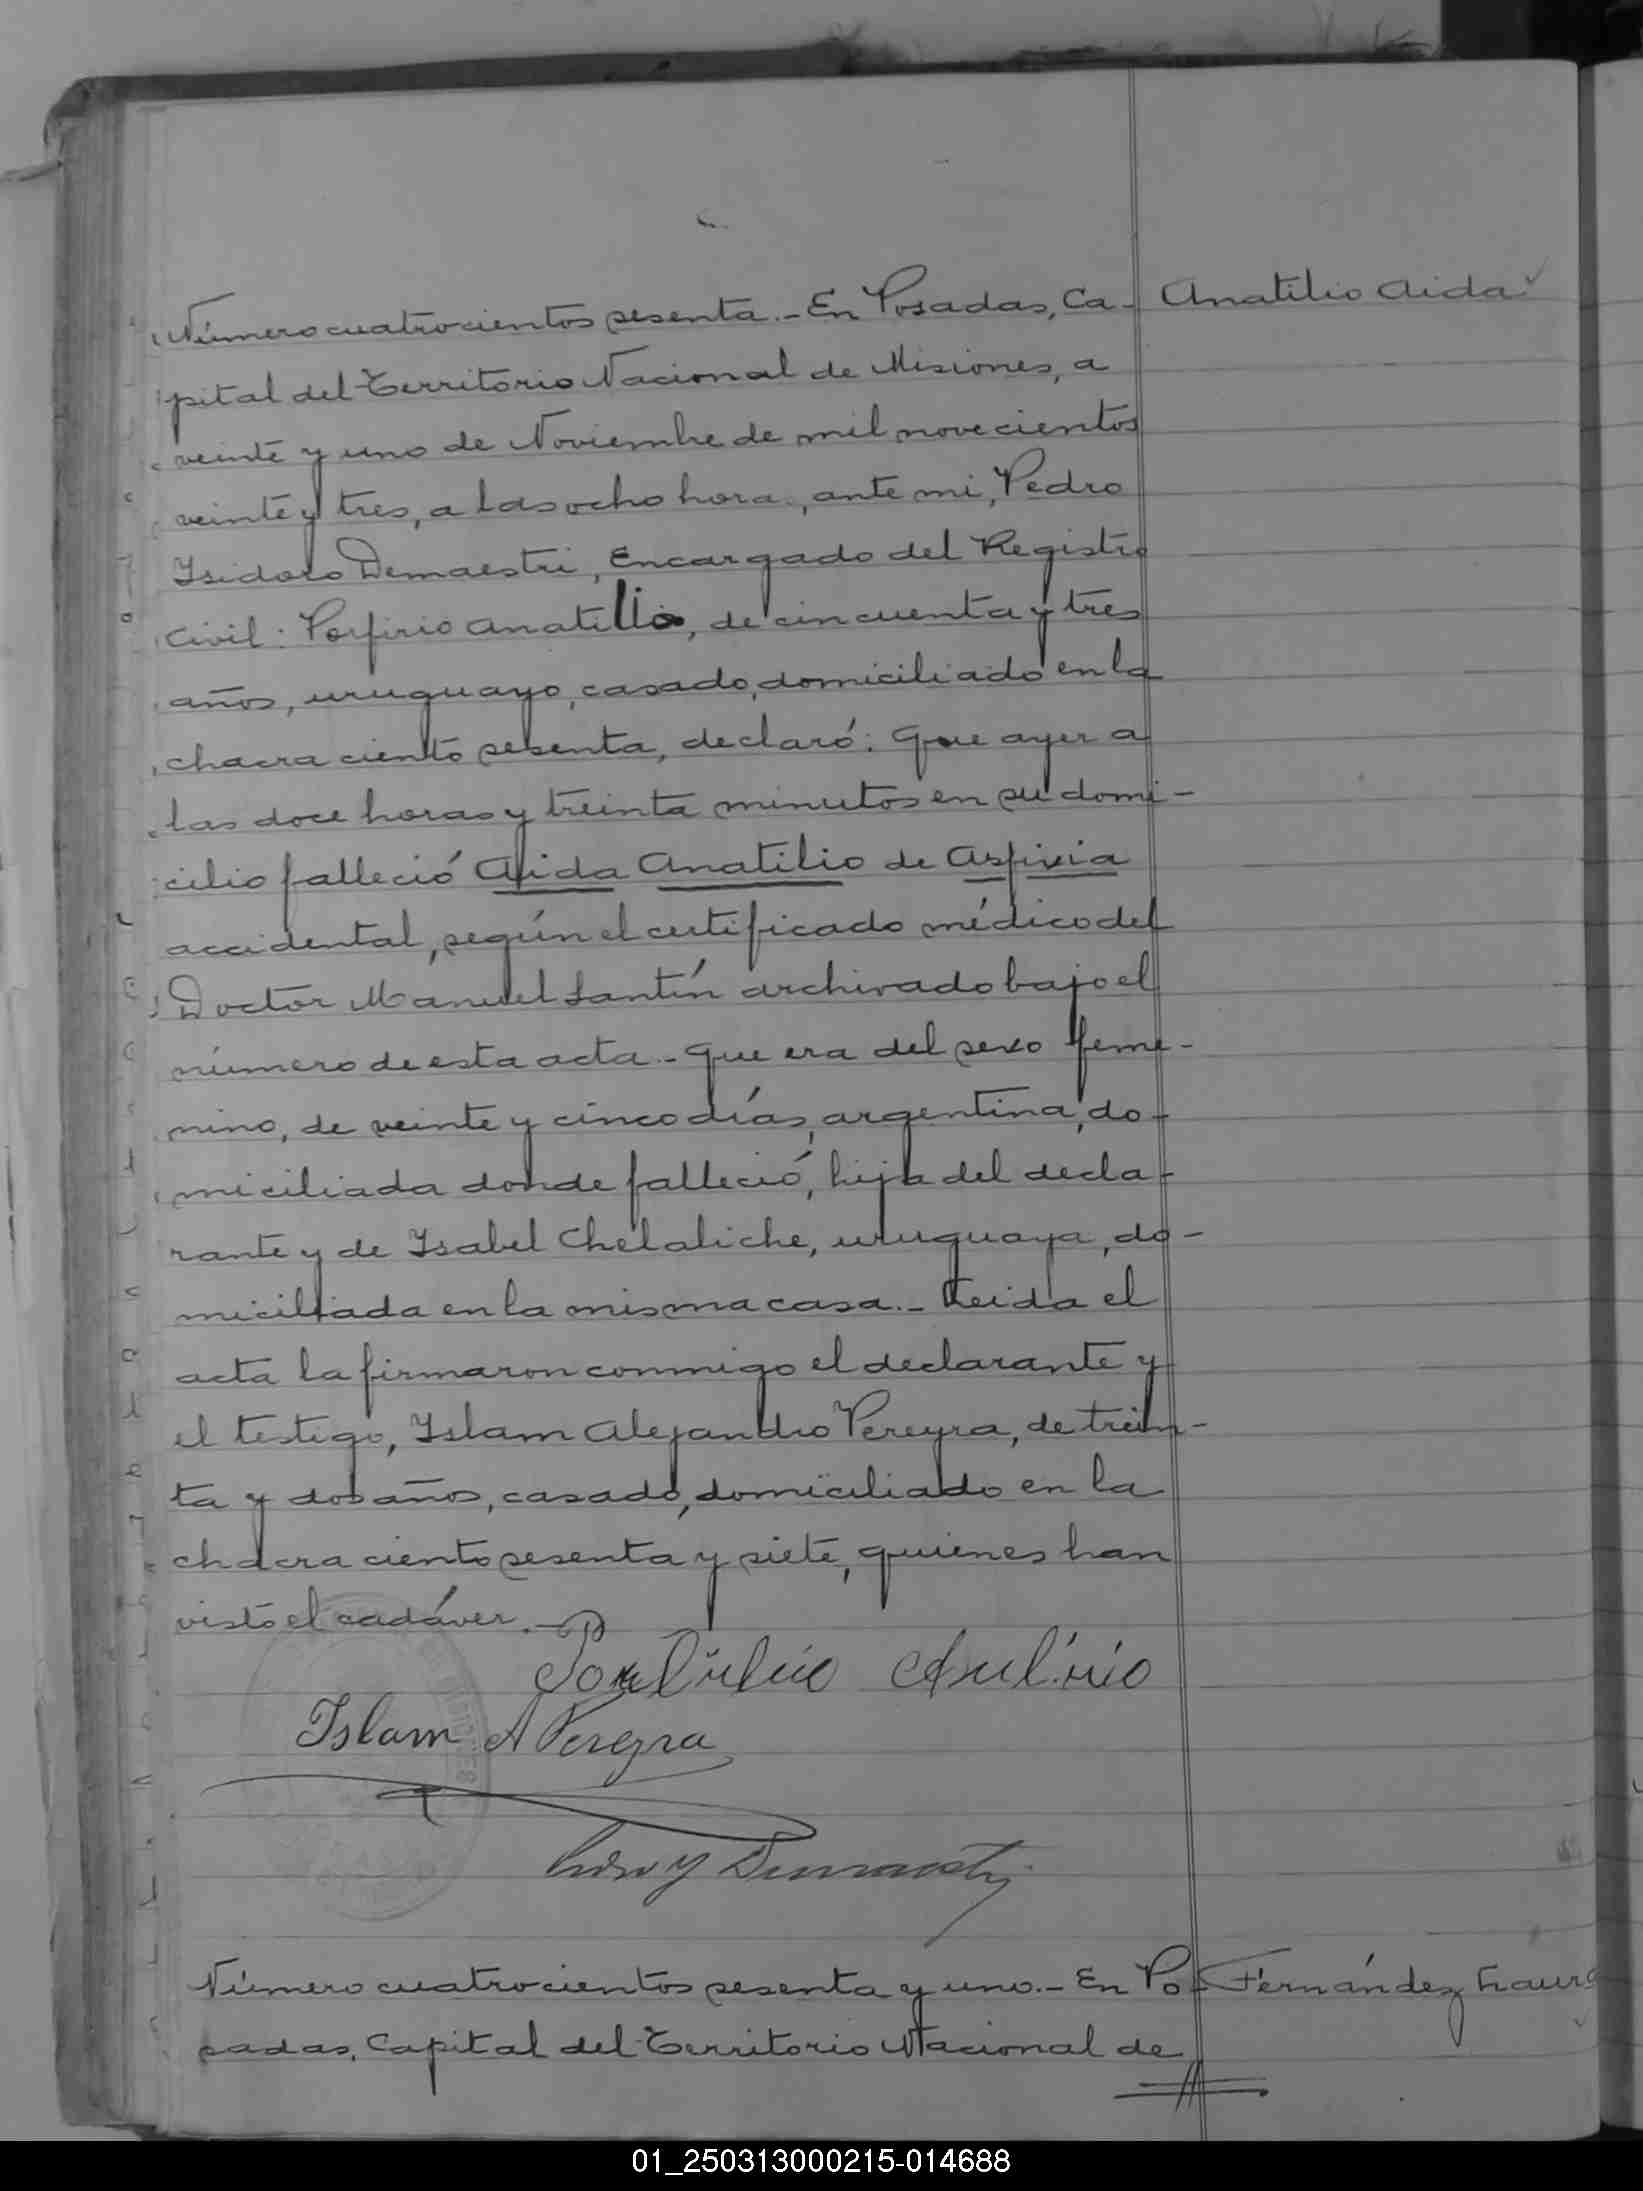 Número cuatrocientos sesenta.- En Posadas, Ca- Anatilio Aida
pital del Territorio Nacional de Misiones, a
veinte y uno de Noviembre de mil novecientos
veinte y tres, a las ocho hora, ante mi, Pedro
Isidoro Demaestri, Encargado del Registro
Civil: Porfirio Anatilio, de cincuenta y tres
años, uruguayo, casado, domiciliado en la
chacra ciento sesenta, declaró: Que ayer a
las doce horas y treinta minutos en su domi-
cilio falleció Aida Anatilio de Asfixia
accidental, según el certificado médico del
Doctor Manuel Santín archivado bajo el
número de esta acta.- Que era del sexo feme-
nino, de veinte y cinco días, argentina, do-
miciliada donde falleció, hija del decla-
rante y de Isabel Chelaliche, uruguaya, do-
miciliada en la misma casa.- Leida el
acta la firmaron conmigo el declarante y
el testigo, Islam Alejandro Pereyra, de trein-
ta y dos años, casado, domiciliado en la
chacra ciento sesenta y siete, quienes han
visto el cadáver.-
Islam A Pereyra
Pedro Y Demaestri
Número cuatrocientos sesenta y uno.- En Po- Fernández Laura
sadas, Capital del Territorio Nacional de
01_250313000215-014688